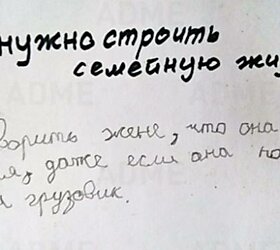 нужно строить
семейную жи
ворить жене, что она
я, даже если она по
грузовик.